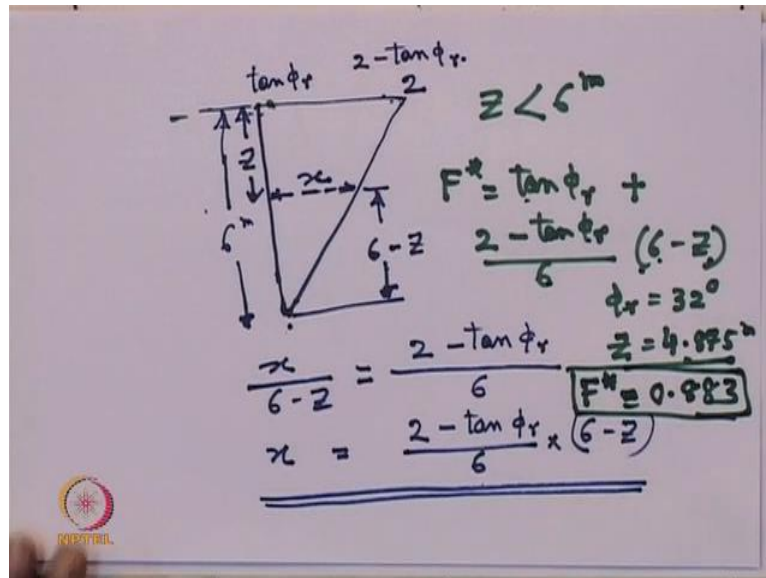 2 - tan φr.
tan φr
2
Z < 6 m
Z
x
6 m
6 - Z
F* = tan φr +
2 - tan φr / 6 (6 - Z)
φr = 32°
Z = 4.875 m
F* = 0.883
x / 6 - Z = 2 - tan φr / 6
x = 2 - tan φr / 6 × (6 - Z)
NPTEL